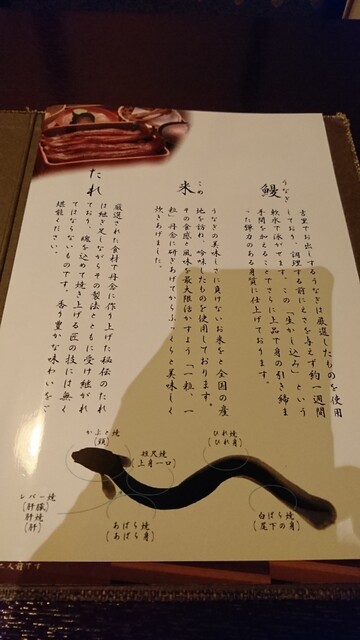 鰻
うなぎ
吉里でお出しするうなぎは厳選したものを使用
しており、調理する前にえさを与えず約一週間
軟水で泳がせます。この「生かし込み」という
手間を加えることでさらに上品で身の引き締ま
った弾力のある身質に仕上げております。
米
こめ
うなぎの美味しさに負けないお米をと全国の産
地を訪ね、吟味したものを使用しております。
米の食感と風味を最大限活かすよう「一粒、一
粒」丹念に研ぎあげてからふっくらと美味しく
炊きあげました。
たれ
厳選された食材で丹念に作り上げた秘伝のたれ
は継ぎ足しながらその製法とともに受け継がれ
ており、魂を込めて焼き上げる匠の技には無く
てはならないものです。香り豊かな味わいをご
堪能ください。
かぶと焼
(頭)
短尺焼
上身一口
ひれ焼
(ひれ身)
レバー焼
(肝臓)
肝焼
(肝)
あばら焼
(あばら身)
白ばら焼
(尾下の身)
人前です